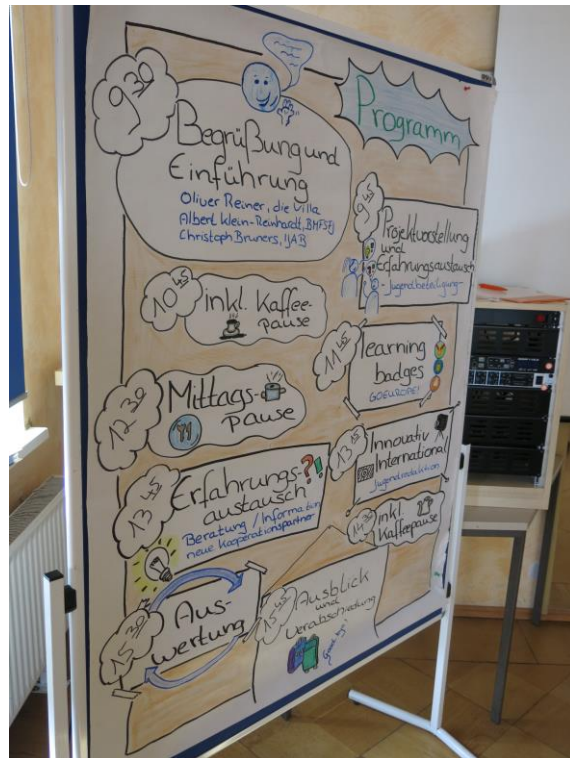 Programm
9 30
Begrüßung und
Einführung
Oliver Reiner, die Villa
Albert Klein-Reinhardt, BMFSFJ
Christoph Bruners, IJAB
9 45
Projektvorstellung
und
Erfahrungsaustausch
- Jugendbeteiligung -
10 45
inkl. Kaffee-
pause
11 45
learning
badges
GOEUROPE!
12 30
Mittags-
pause
13 45
Innovativ
International
Jugendredaktion
13 45
Erfahrungs-
austausch
Beratung / Information
neue Kooperationspartner
14 30
inkl.
Kaffeepause
15 30
Aus-
wertung
15 45
Ausblick
und
Verabschiedung